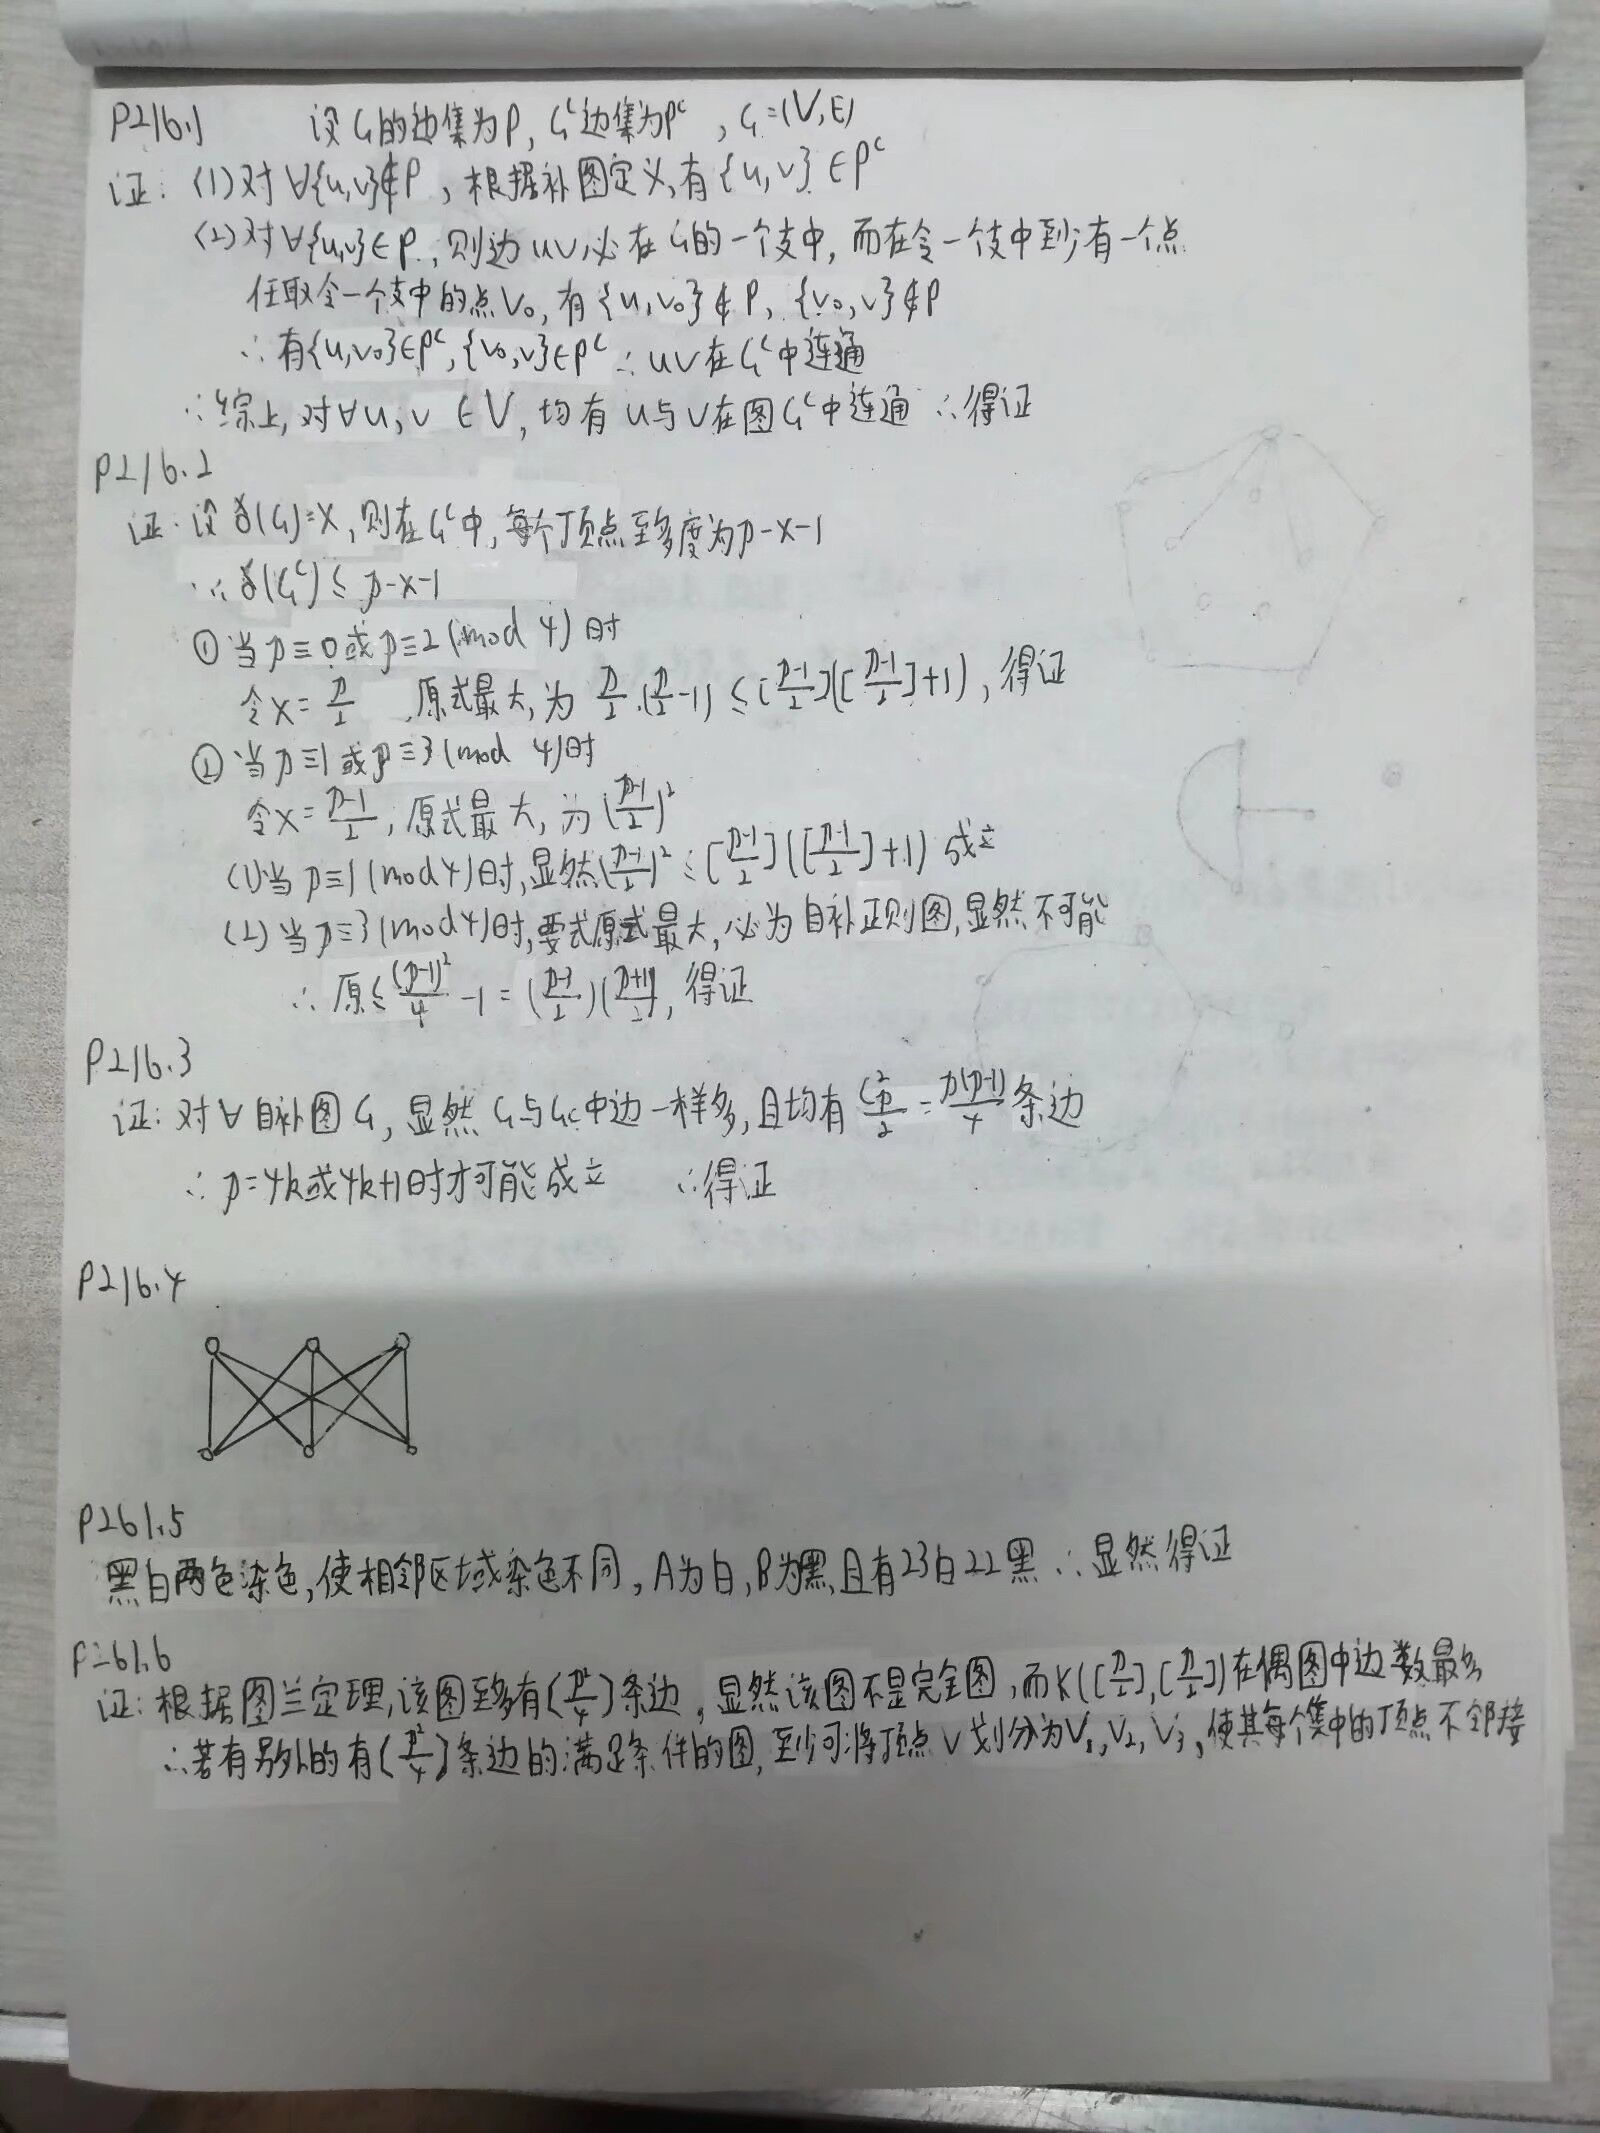 P216.1 设G的边集为P, Gᶜ边集为Pᶜ, G=(V,E)
证: (1)对∀{u,v}∉P, 根据补图定义,有{u,v}∈Pᶜ
(2)对∀{u,v}∈P, 则边uv必在G的一个支中, 而在令一个支中到少有一个点
任取令一个支中的点V₀, 有{u,v₀}∉P, {v₀,v}∉P
∴有{u,v₀}∈Pᶜ, {v₀,v}∈Pᶜ ∴uv在Gᶜ中连通
∴综上, 对∀u,v∈V, 均有u与v在图Gᶜ中连通 ∴得证
P216.2
证: 设δ(G)=x, 则在Gᶜ中, 每个顶点至多度为p-x-1
∴δ(Gᶜ)≤p-x-1
①当p≡0或p≡2(mod 4)时
令x=p/2 , 原式最大, 为 p/2·(p/2-1)≤[(p-1)/2]([(p-1)/2]+1), 得证
②当p≡1或p≡3(mod 4)时
令x=(p-1)/2, 原式最大, 为((p-1)/2)²
(1)当p≡1(mod4)时,显然((p-1)/2)²≤[(p-1)/2]([(p-1)/2]+1) 成立
(2)当p≡3(mod4)时,要式原式最大,必为自补正则图,显然不可能
∴原≤(p-1)²/4-1=((p-3)/2)((p+1)/2), 得证
P216.3
证: 对∀自补图G, 显然G与Gc中边一样多, 且均有C²p/2=p(p-1)/4条边
∴p=4k或4k+1时才可能成立 ∴得证
P216.4
P261.5
黑白两色染色, 使相邻区域染色不同, A为白, B为黑,且有23白22黑 ∴显然得证
P261.6
证: 根据图兰定理, 该图至多有[p²/4]条边, 显然该图不是完全图, 而K([p/2],[p/2])在偶图中边数最多
∴若有另外的有[p²/4]条边的满足条件的图, 至少可将顶点V划分为V₁,V₂,V₃, 使其每个集中的顶点不邻接